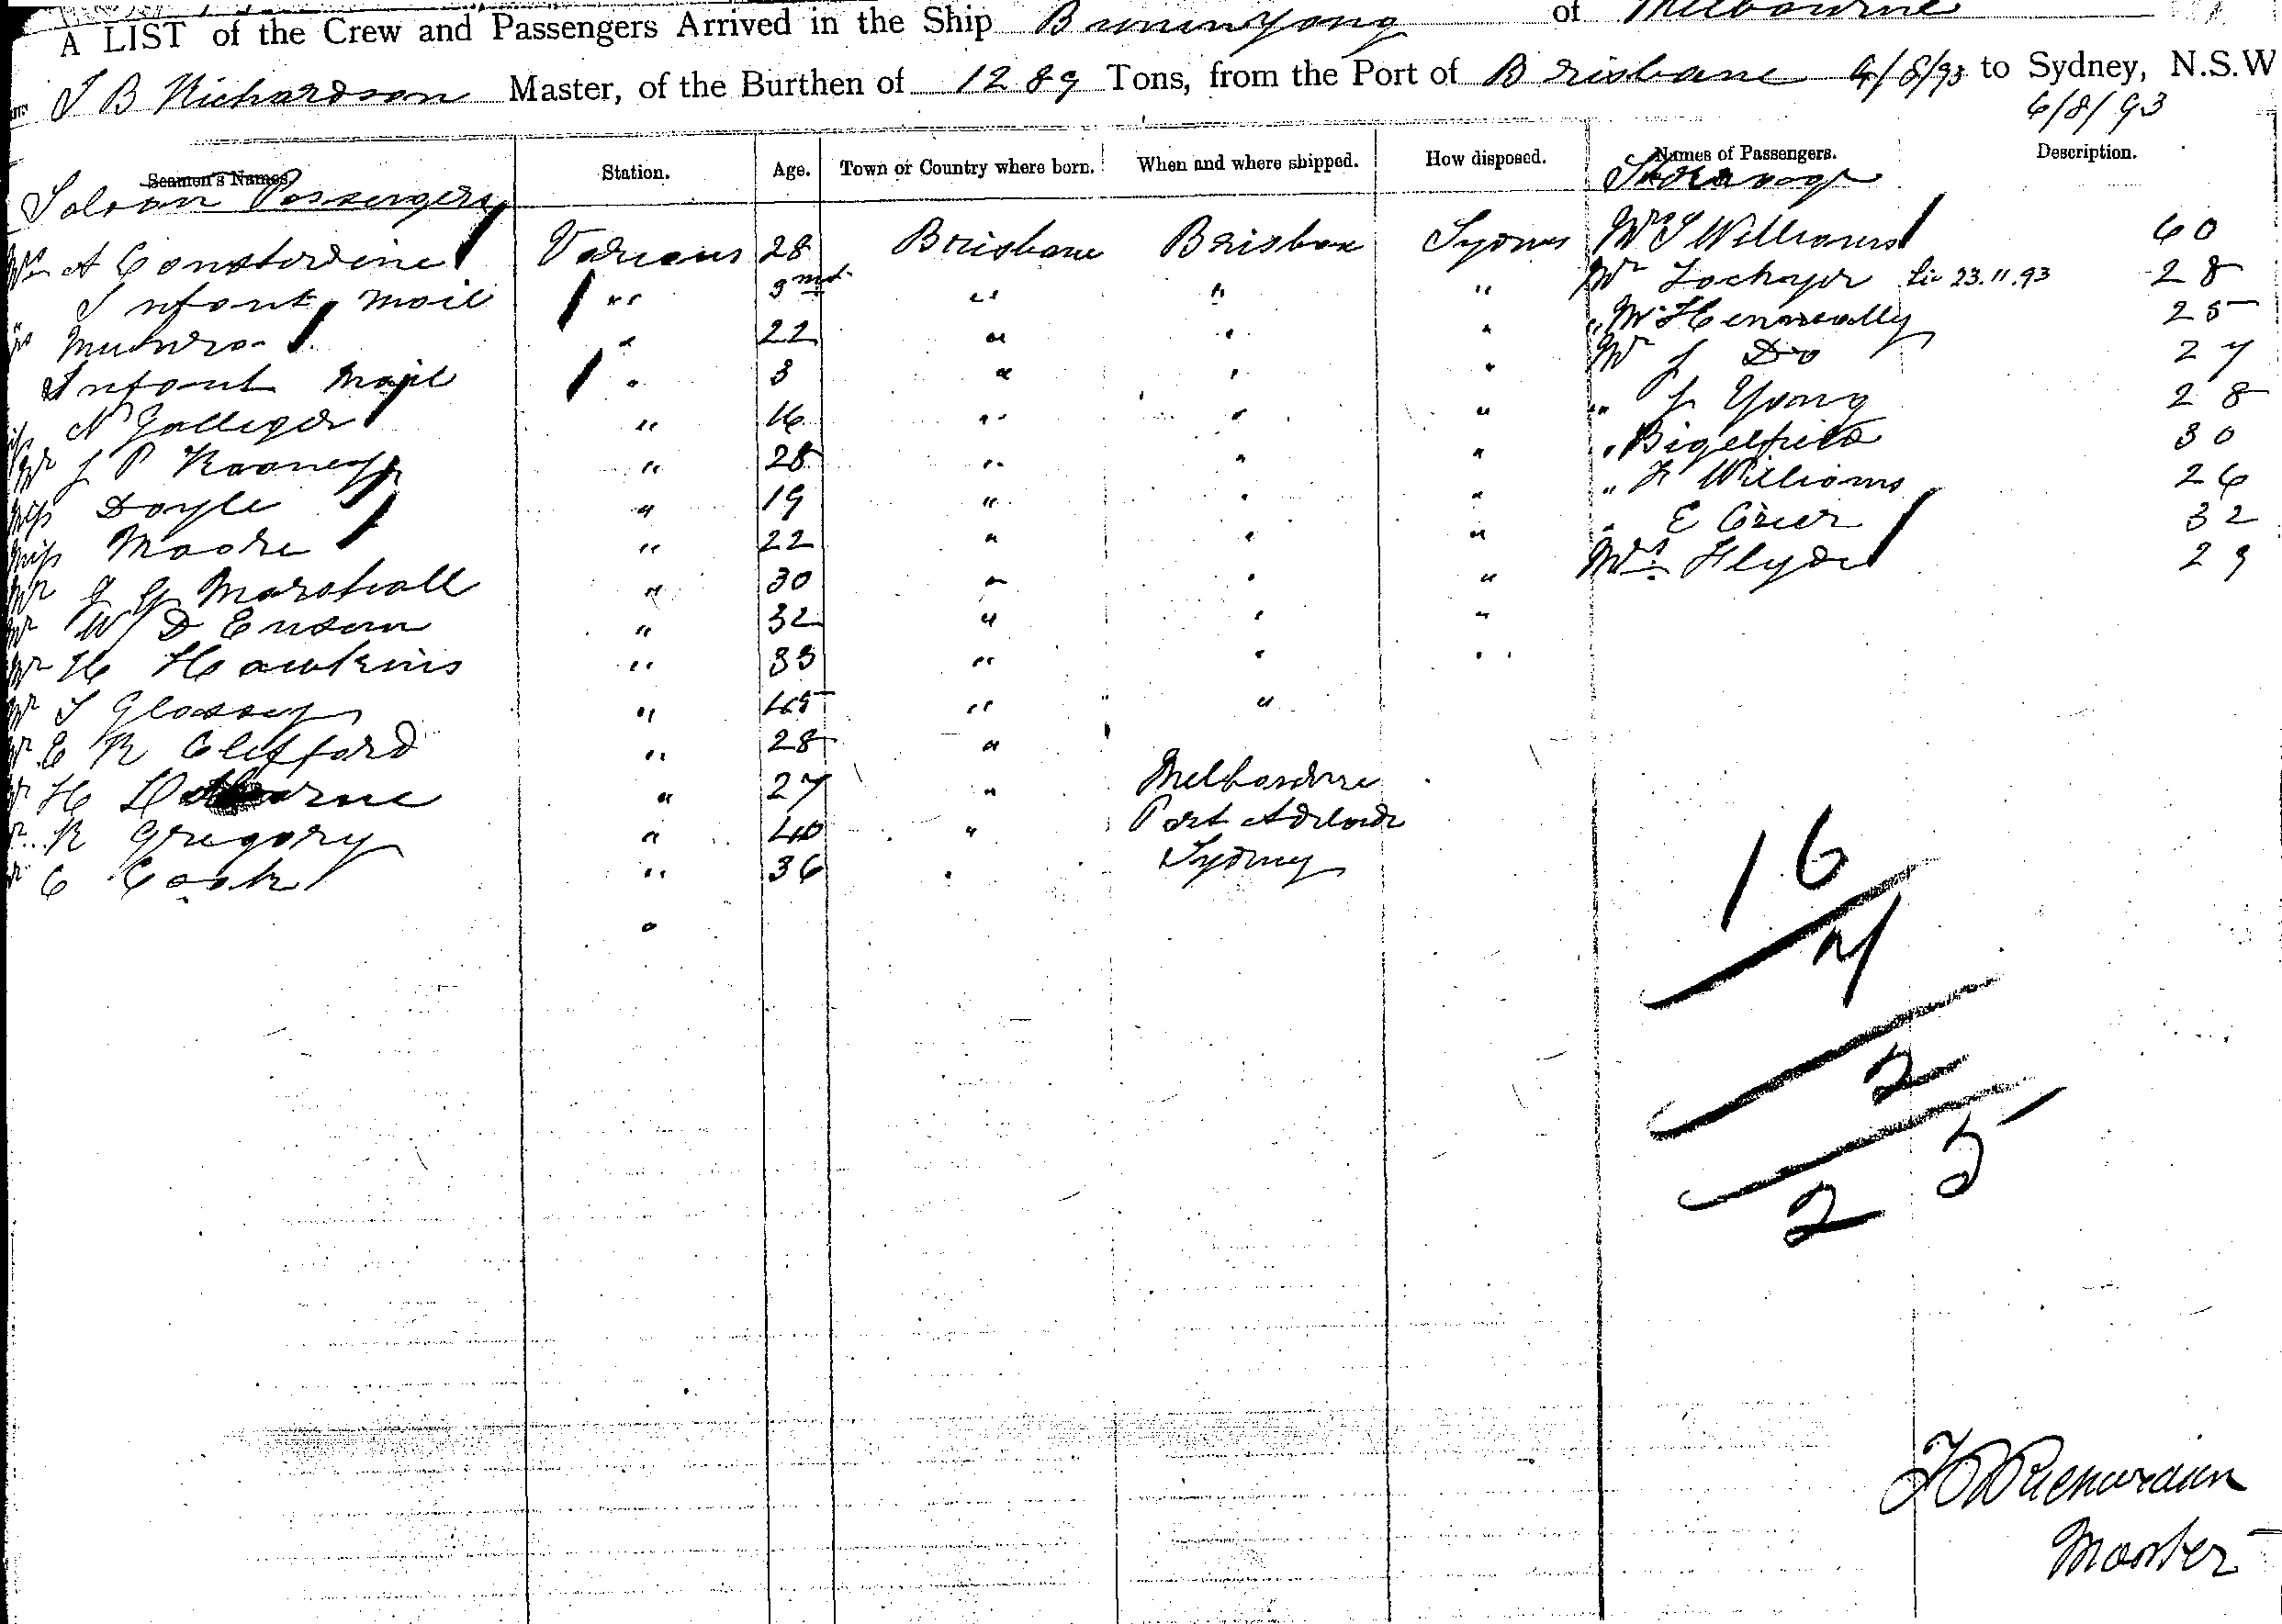 A LIST of the Crew and Passengers Arrived in the Ship Buninyong of Melbourne
J B Richardson Master, of the Burthen of 1289 Tons, from the Port of Brisbane 4/8/93 to Sydney, N.S.W
6/8/93
Seamen's Names. Station. Age. Town or Country where born. When and where shipped. How disposed. Names of Passengers. Description.
Saloon Passengers Steerage
Mrs A Considine Various 28 Brisbane Brisbane Sydney Mrs J Williams 60
Infant, mail " 9 mts " " " Mr Lockyer Liv 23.11.93 28
Munro " 22 " " " " Mr Hennesally 25
Infant mail " 3 " " " Mr J Do 27
Miss N Galleger " 16 " " " " J Young 28
Mr J P Rooney " 28 " " " " Bigelfield 30
Miss Doyle " 19 " " " " F Williams 26
Miss Moore " 22 " " " " E Greer 32
Mr J G Marshall " 30 " " " Mrs Hyde 29
Mr W D Ensum " 32 " " "
Mr H Hawkins " 33 " " "
Mr J Glossey " 45 " "
Mr E R Clifford " 28 "
Mr H " 27 " Melbourne
Mr R Gregory " 40 " Port Adelaide
Mr C Cook " 36 " Sydney
"
16
7
2
25
J B Richardson
Master